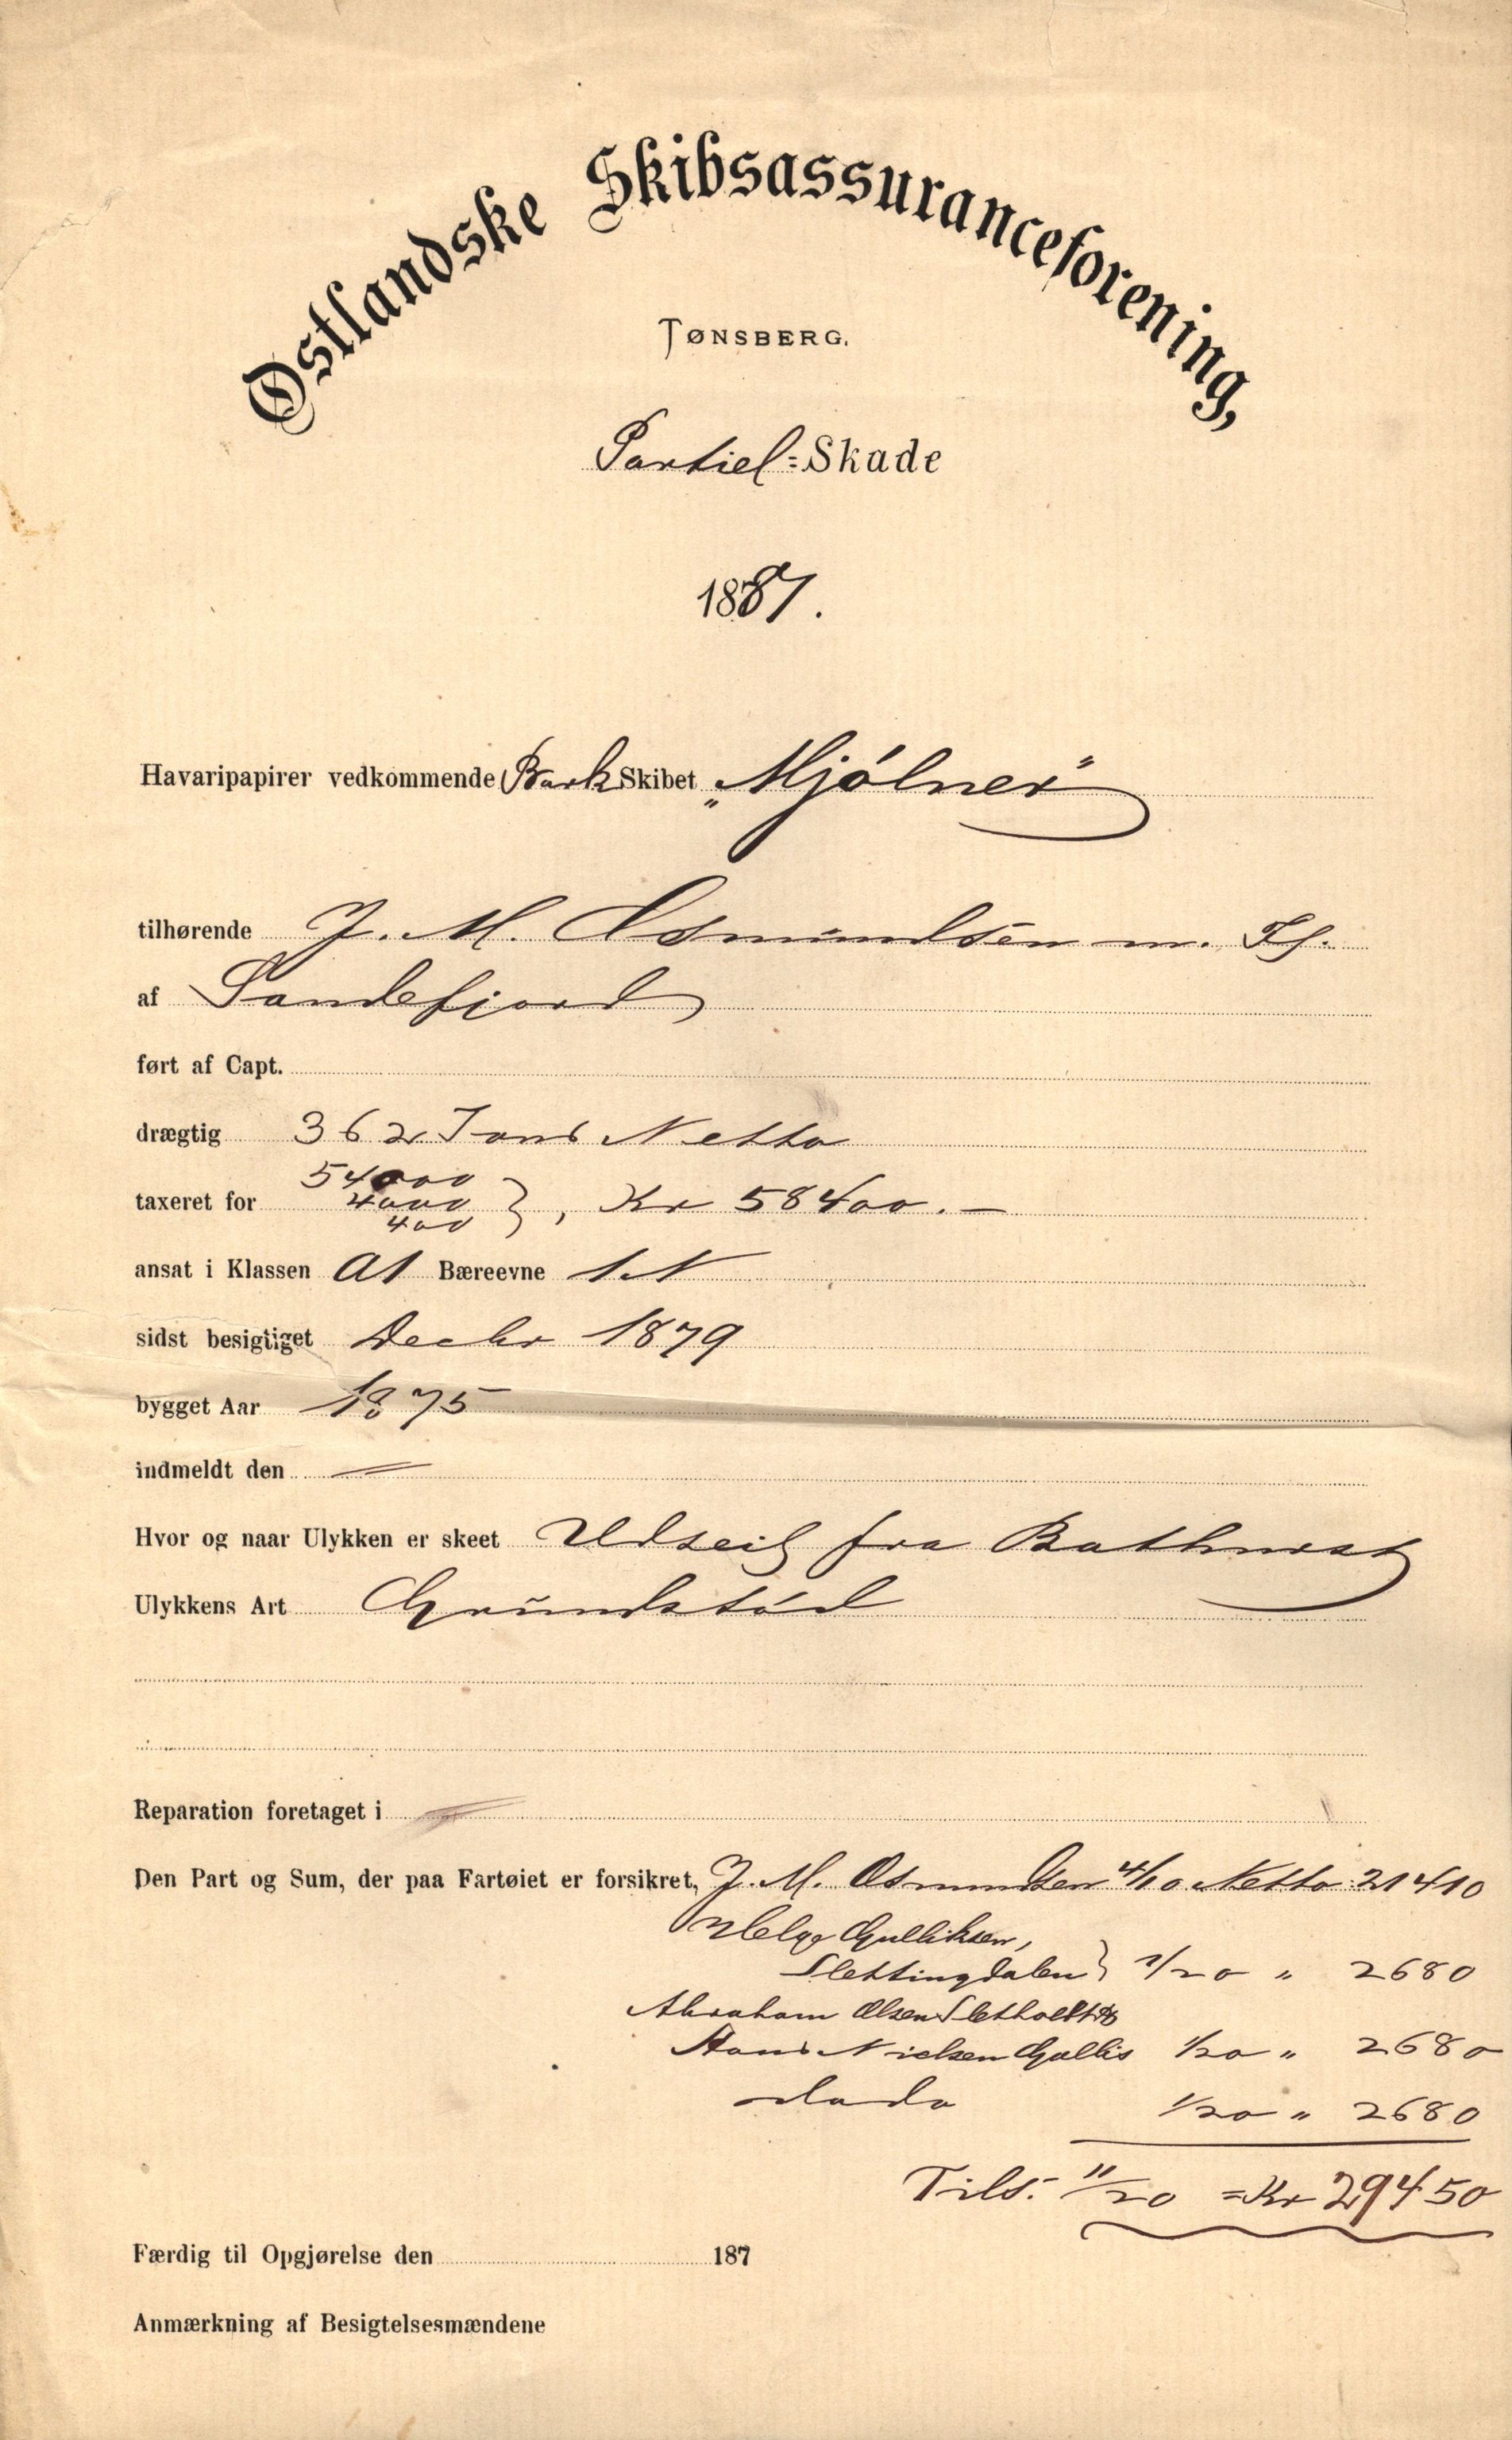 Østlandske Skibsassuranceforening,
TØNSBERG.
Partiel=Skade
1887.
Havaripapirer vedkommende Bark Skibet „Mjölner"
tilhørende J. M. Osmundsen m. Fl.
af Sandefjord
ført af Capt.
drægtig 362 Tons Netto
54000
taxeret for 4000 }, Kr 58400.—
400
ansat i Klassen A1 Bæreevne 1 N
sidst besigtiget Decbr 1879
bygget Aar 1875
indmeldt den —
Hvor og naar Ulykken er skeet Udseil fra Bathurst
Ulykkens Art Grundstöd
Reparation foretaget i
Den Part og Sum, der paa Fartøiet er forsikret, J. M. Osmundsen 4/10 Netto 21410
Helge Gulliksen,
Slettingdalen } 1/20 " 2680
Abraham Olsen Sletholt &
Hans Nielsen Gallis 1/20 " 2680
dado 1/20 " 2680
Tils. 11/20 = Kr 29450
Færdig til Opgjørelse den 187
Anmærkning af Besigtelsesmændene